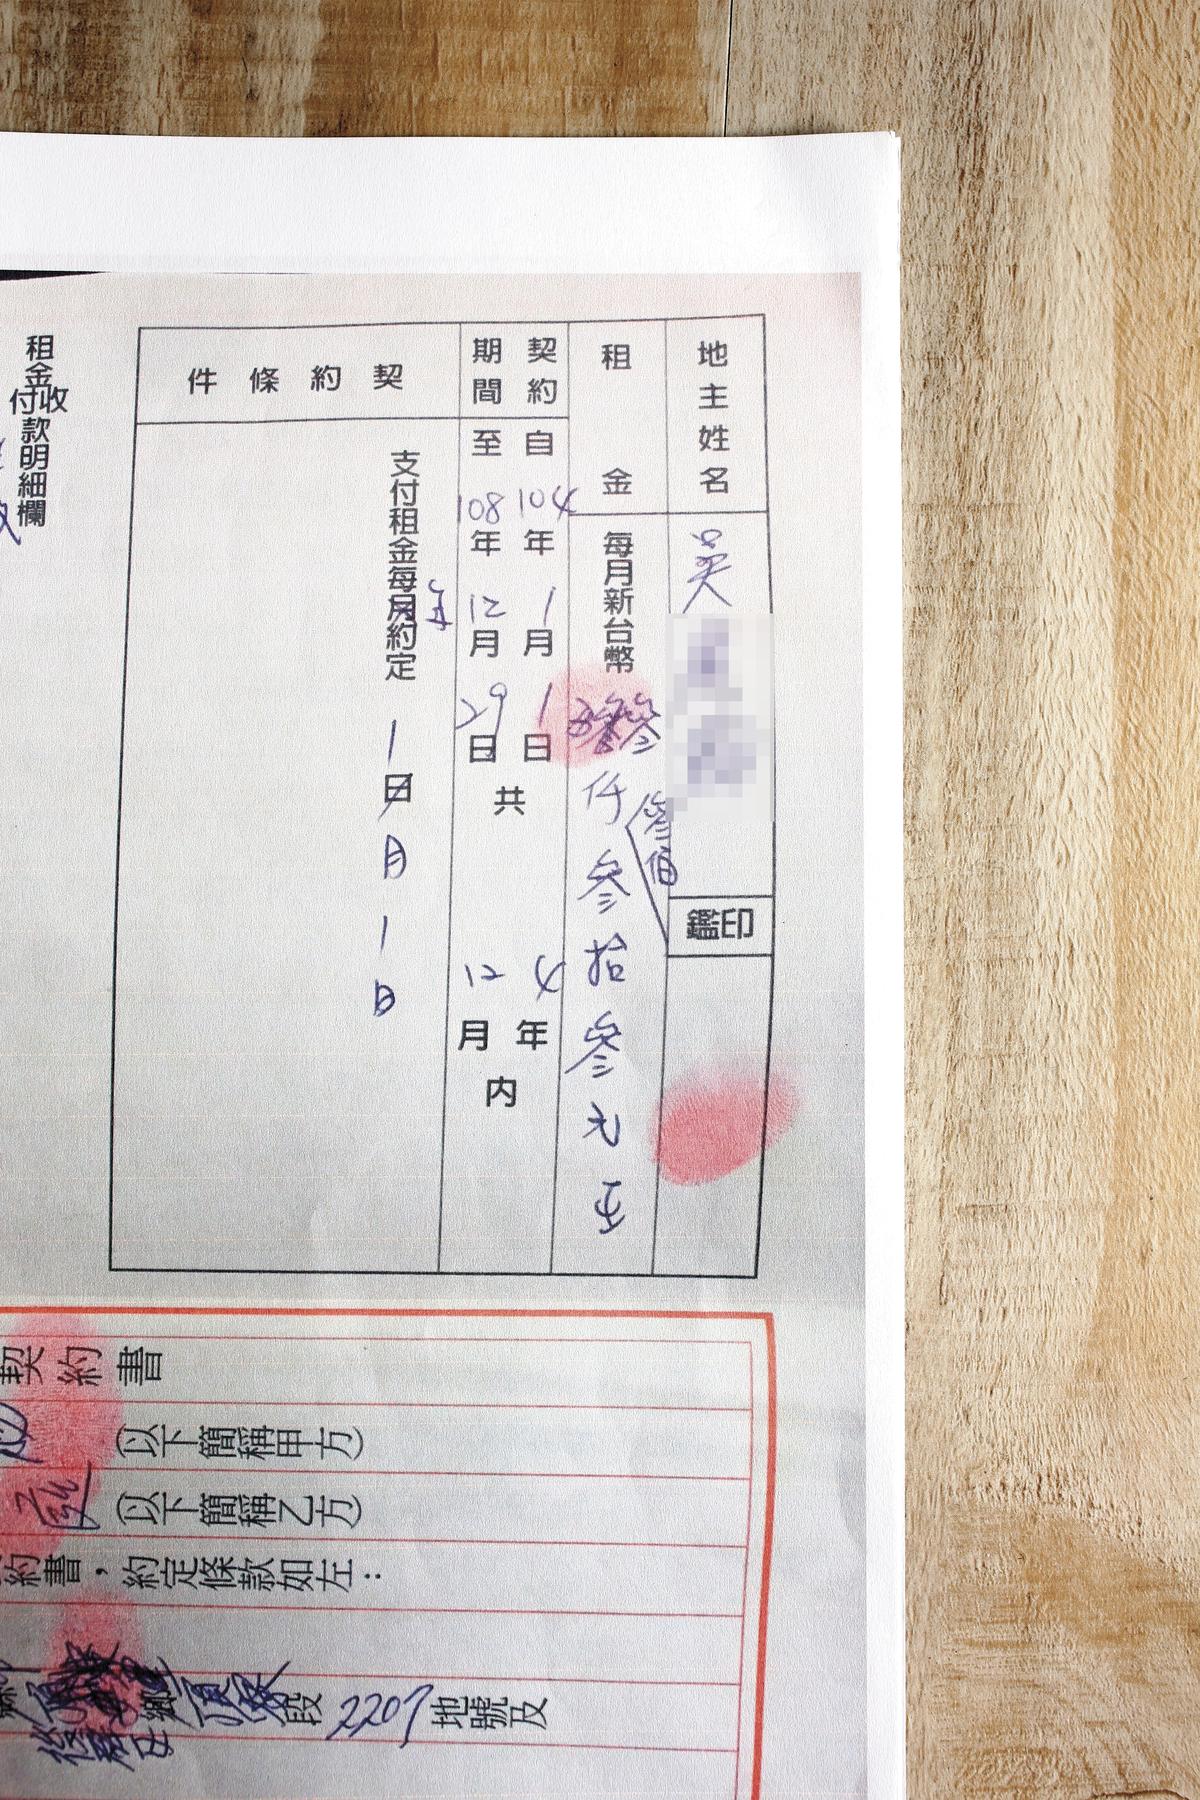 地主姓名 吳
鑑印
租金 每月新台幣 參仟參佰參拾參元正
契約 自104年1月1日 共 4年
期間 至108年12月29日 12月 內
契約條件
支付租金每年約定 1月1日
租金收付款明細欄
契約書
(以下簡稱甲方)
(以下簡稱乙方)
約書，約定條款如左：
鄉 段2207地號及